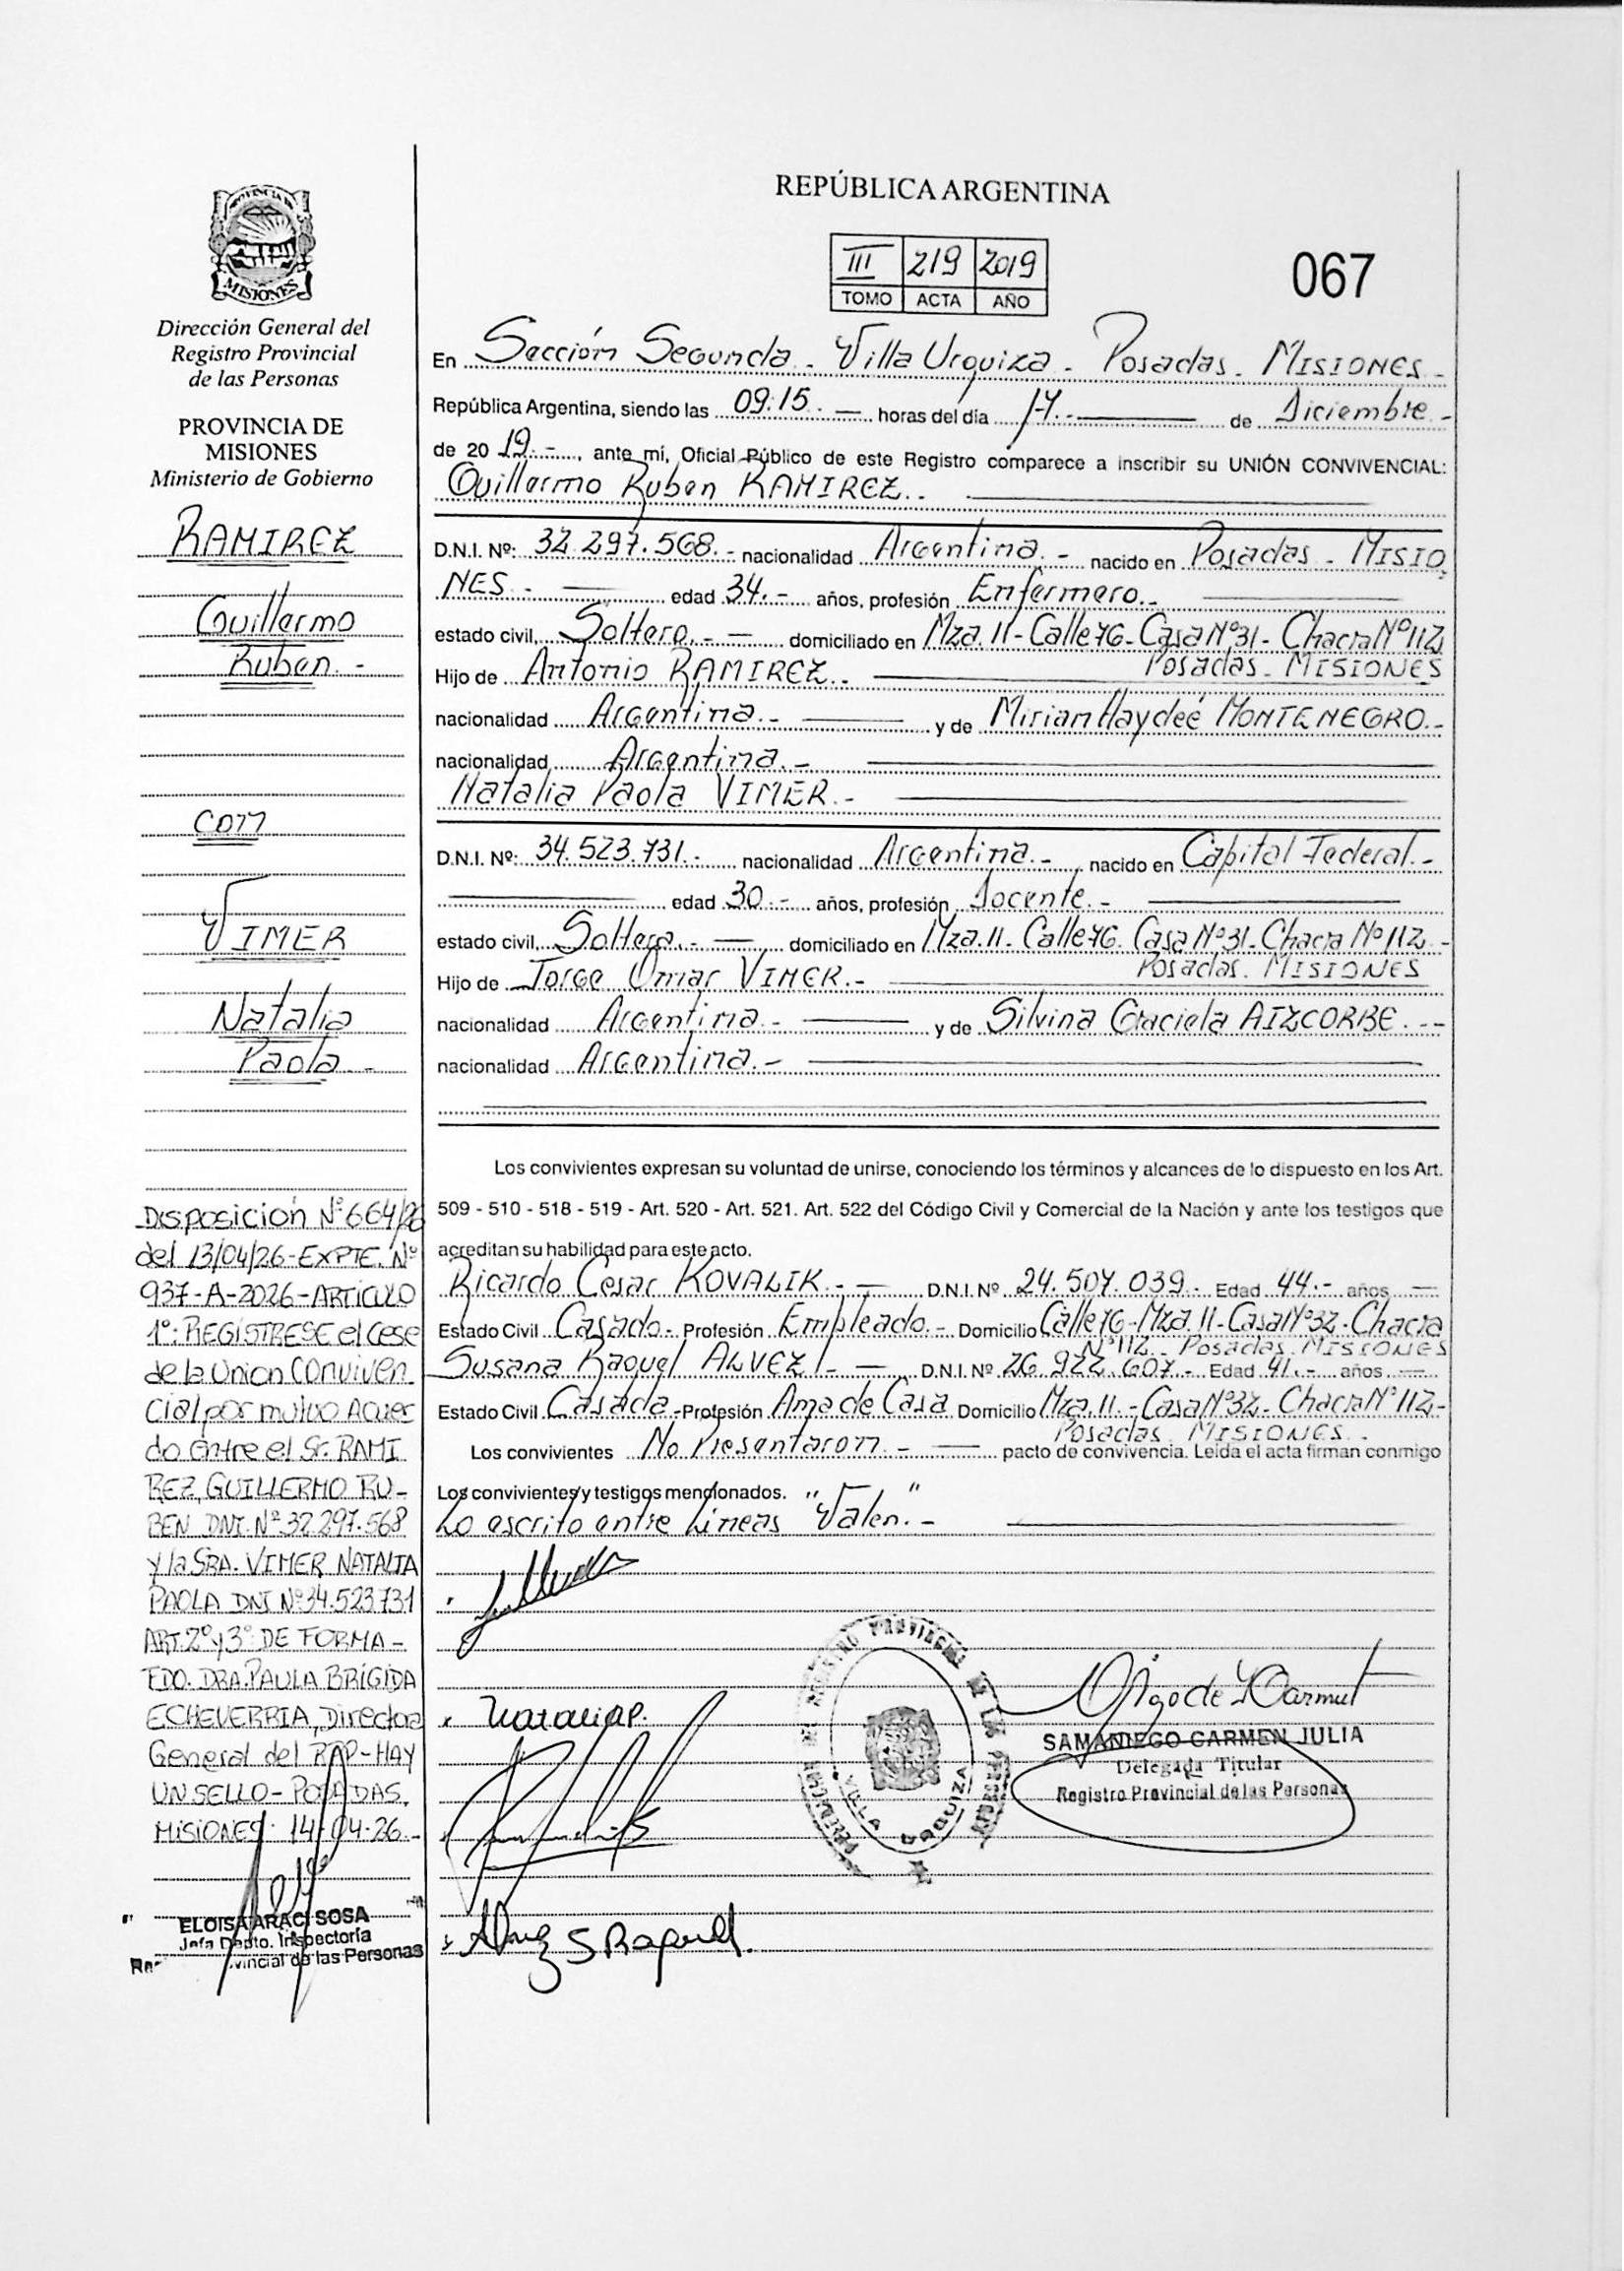 REPÚBLICA ARGENTINA
III 219 2019
TOMO ACTA AÑO
067
PROVINCIA DE
MISIONES
Dirección General del
Registro Provincial
de las Personas
PROVINCIA DE
MISIONES
Ministerio de Gobierno
RAMIREZ
Guillermo
Ruben.-
con
VIMER
Natalia
Paola.-
Disposición Nº 664/26
del 13/04/26-EXPTE. Nº
937-A-2026-ARTICULO
1º: REGÍSTRESE el Cese
de la Union Conviven
cial por mutuo Acuer
do Entre el Sr. RAMI
REZ, GUILLERMO RU-
BEN DNI. Nº 32.297.568
y la SRA. VIMER NATALIA
PAOLA DNI Nº 34.523.731
ART. 2º y 3º: DE FORMA-
FDO. DRA. PAULA BRÍGIDA
ECHEVERRIA, Directora
General del RPP-HAY
UN SELLO-POSADAS,
MISIONES 14-04-26.-
ELOISA ARACI SOSA
Jefa Depto. Inspectoría
vincial de las Personas
En Sección Segunda - Villa Urquiza - Posadas - MISIONES -
República Argentina, siendo las 09:15.- horas del día 17.- de Diciembre.-
de 2019.-, ante mí, Oficial Público de este Registro comparece a inscribir su UNIÓN CONVIVENCIAL:
Guillermo Ruben RAMIREZ.-
D.N.I. Nº: 32.297.568.- nacionalidad Argentina.- nacido en Posadas - MISIO
NES.- edad 34.- años, profesión Enfermero.-
estado civil, Soltero.- domiciliado en Mza. 11-Calle 76-Casa Nº31-Chacra Nº112
Posadas - MISIONES
Hijo de Antonio RAMIREZ.-
nacionalidad Argentina.- y de Mirian Haydeé MONTENEGRO.-
nacionalidad Argentina.-
Natalia Paola VIMER.-
D.N.I. Nº: 34.523.731.- nacionalidad Argentina.-, nacido en Capital Federal.-
edad 30.- años, profesión Docente.-
estado civil, Soltera.- domiciliado en Mza. 11- Calle 76. Casa Nº31-Chacra Nº112.-
Posadas. MISIONES
Hijo de Jorge Omar VIMER.-
nacionalidad Argentina.- y de Silvina Graciela AIZCORBE.--
nacionalidad Argentina.-
Los convivientes expresan su voluntad de unirse, conociendo los términos y alcances de lo dispuesto en los Art.
509 - 510 - 518 - 519 - Art. 520 - Art. 521. Art. 522 del Código Civil y Comercial de la Nación y ante los testigos que
acreditan su habilidad para este acto.
Ricardo Cesar KOVALIK.- D.N.I. Nº 24.507.039.- Edad 44.- años
Estado Civil Casado.- Profesión Empleado.- Domicilio Calle 76-Mza. 11-Casa Nº32-Chacra
Nº112.- Posadas. MISIONES
Susana Raquel ALVEZ.- D.N.I. Nº 26.922.607.- Edad 41.- años
Estado Civil Casada.- Profesión Ama de Casa Domicilio Mza. 11.-Casa Nº32-Chacra Nº112-
Posadas. MISIONES.-
Los convivientes No Presentaron.- pacto de convivencia. Leída el acta firman conmigo
Los convivientes y testigos mencionados.
Lo escrito entre Lineas "Valen".-
Natalia P.
Alvez S Raquel.
REGISTRO PROVINCIAL DE LAS PERSONAS
VILLA URQUIZA
SAMANIEGO CARMEN JULIA
Delegada Titular
Registro Provincial de las Personas